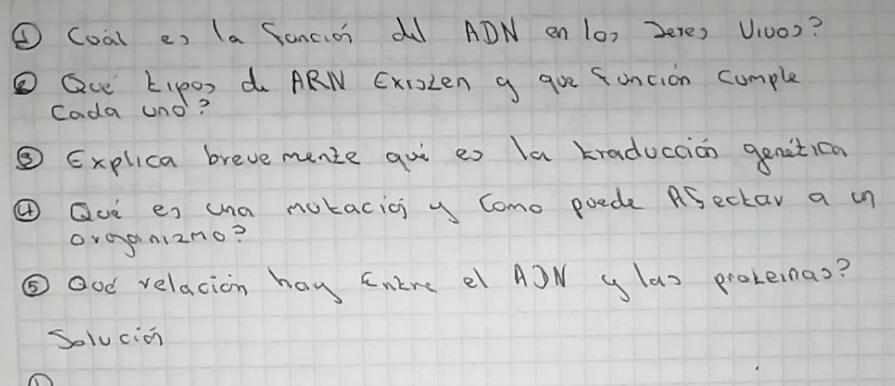 ① Cuál es la función del ADN en los seres vivos?
② Qué tipos de ARN Existen y que función cumple
cada uno?
③ Explica brevemente qué es la traducción genética
④ Qué es una mutación y como puede Afectar a un
organizmo?
⑤ Qué relación hay Entre el ADN y las proteinas?
Solución
①